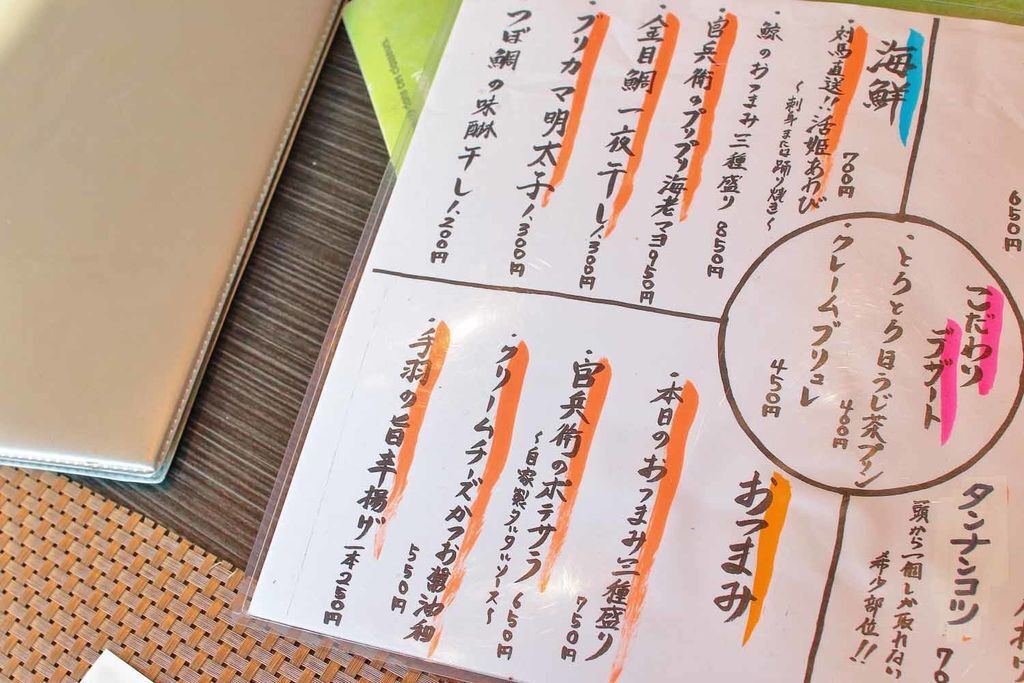 650円
海鮮
・対馬直送!!活姫あわび
〜刺身または踊り焼き〜
700円
・鯨のおつまみ三種盛り 850円
・官兵衛のプリプリ海老マヨ 950円
・金目鯛一夜干し 1,300円
・ブリカマ明太子 1,300円
つぼ鯛の味醂干し 1,200円
こだわり
デザート
・とろとろ白うじ茶プリン
400円
・クレームブリュレ
450円
おつまみ
・本日のおつまみ三種盛り
750円
・官兵衛のポテサラ
〜自家製タルタルソース〜 650円
・クリームチーズかつお醤油和
550円
・手羽の旨辛揚げ 一本250円
タンナンコツ
頭から一個しか取れない
希少部位!!